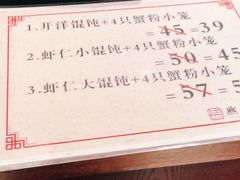 1.开洋馄饨+4只蟹粉小笼
=45=39
2.虾仁小馄饨+4只蟹粉小笼
=50=45
3.虾仁大馄饨+4只蟹粉小笼
=57=5